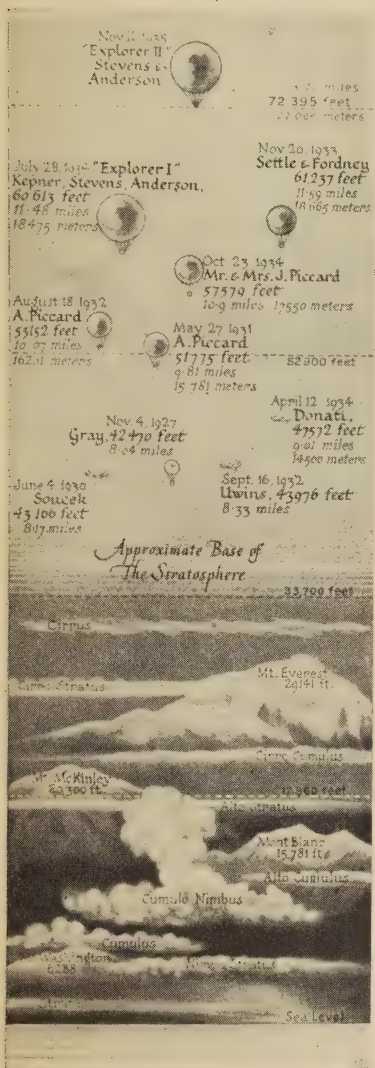 "Explorer II"
Stevens &
Anderson
miles
72 395 feet
meters
Nov 20, 1933
Settle & Fordney
61,237 feet
11.59 miles
18 665 meters
"Explorer I"
Kepner, Stevens, Anderson,
60 613 feet
11.48 miles
18475 meters
Oct 23 1934
Mr. & Mrs. J. Piccard
57579 feet
10.9 miles 17550 meters
August 18 1932
A. Piccard
53152 feet
miles
meters
May 27 1931
A. Piccard
51775 feet
9.81 miles
15 781 meters
feet
April 12 1934
Donati,
47572 feet
miles
14500 meters
Nov. 4, 1927
Gray, 42 470 feet
8.04 miles
Sept. 16, 1932
Uwins, 43976 feet
8.33 miles
June 4 1930
Soucek
43 166 feet
miles
Approximate Base of
The Stratosphere
feet
Cirrus
Cirro Stratus
Mt. Everest
29141 ft.
Cirro Cumulus
Mt. McKinley
20,300 ft.
feet
Alto Stratus
Mont Blanc
15,781 ft.
Alto Cumulus
Cumulo Nimbus
Cumulus
Washington
6288
Sea Level